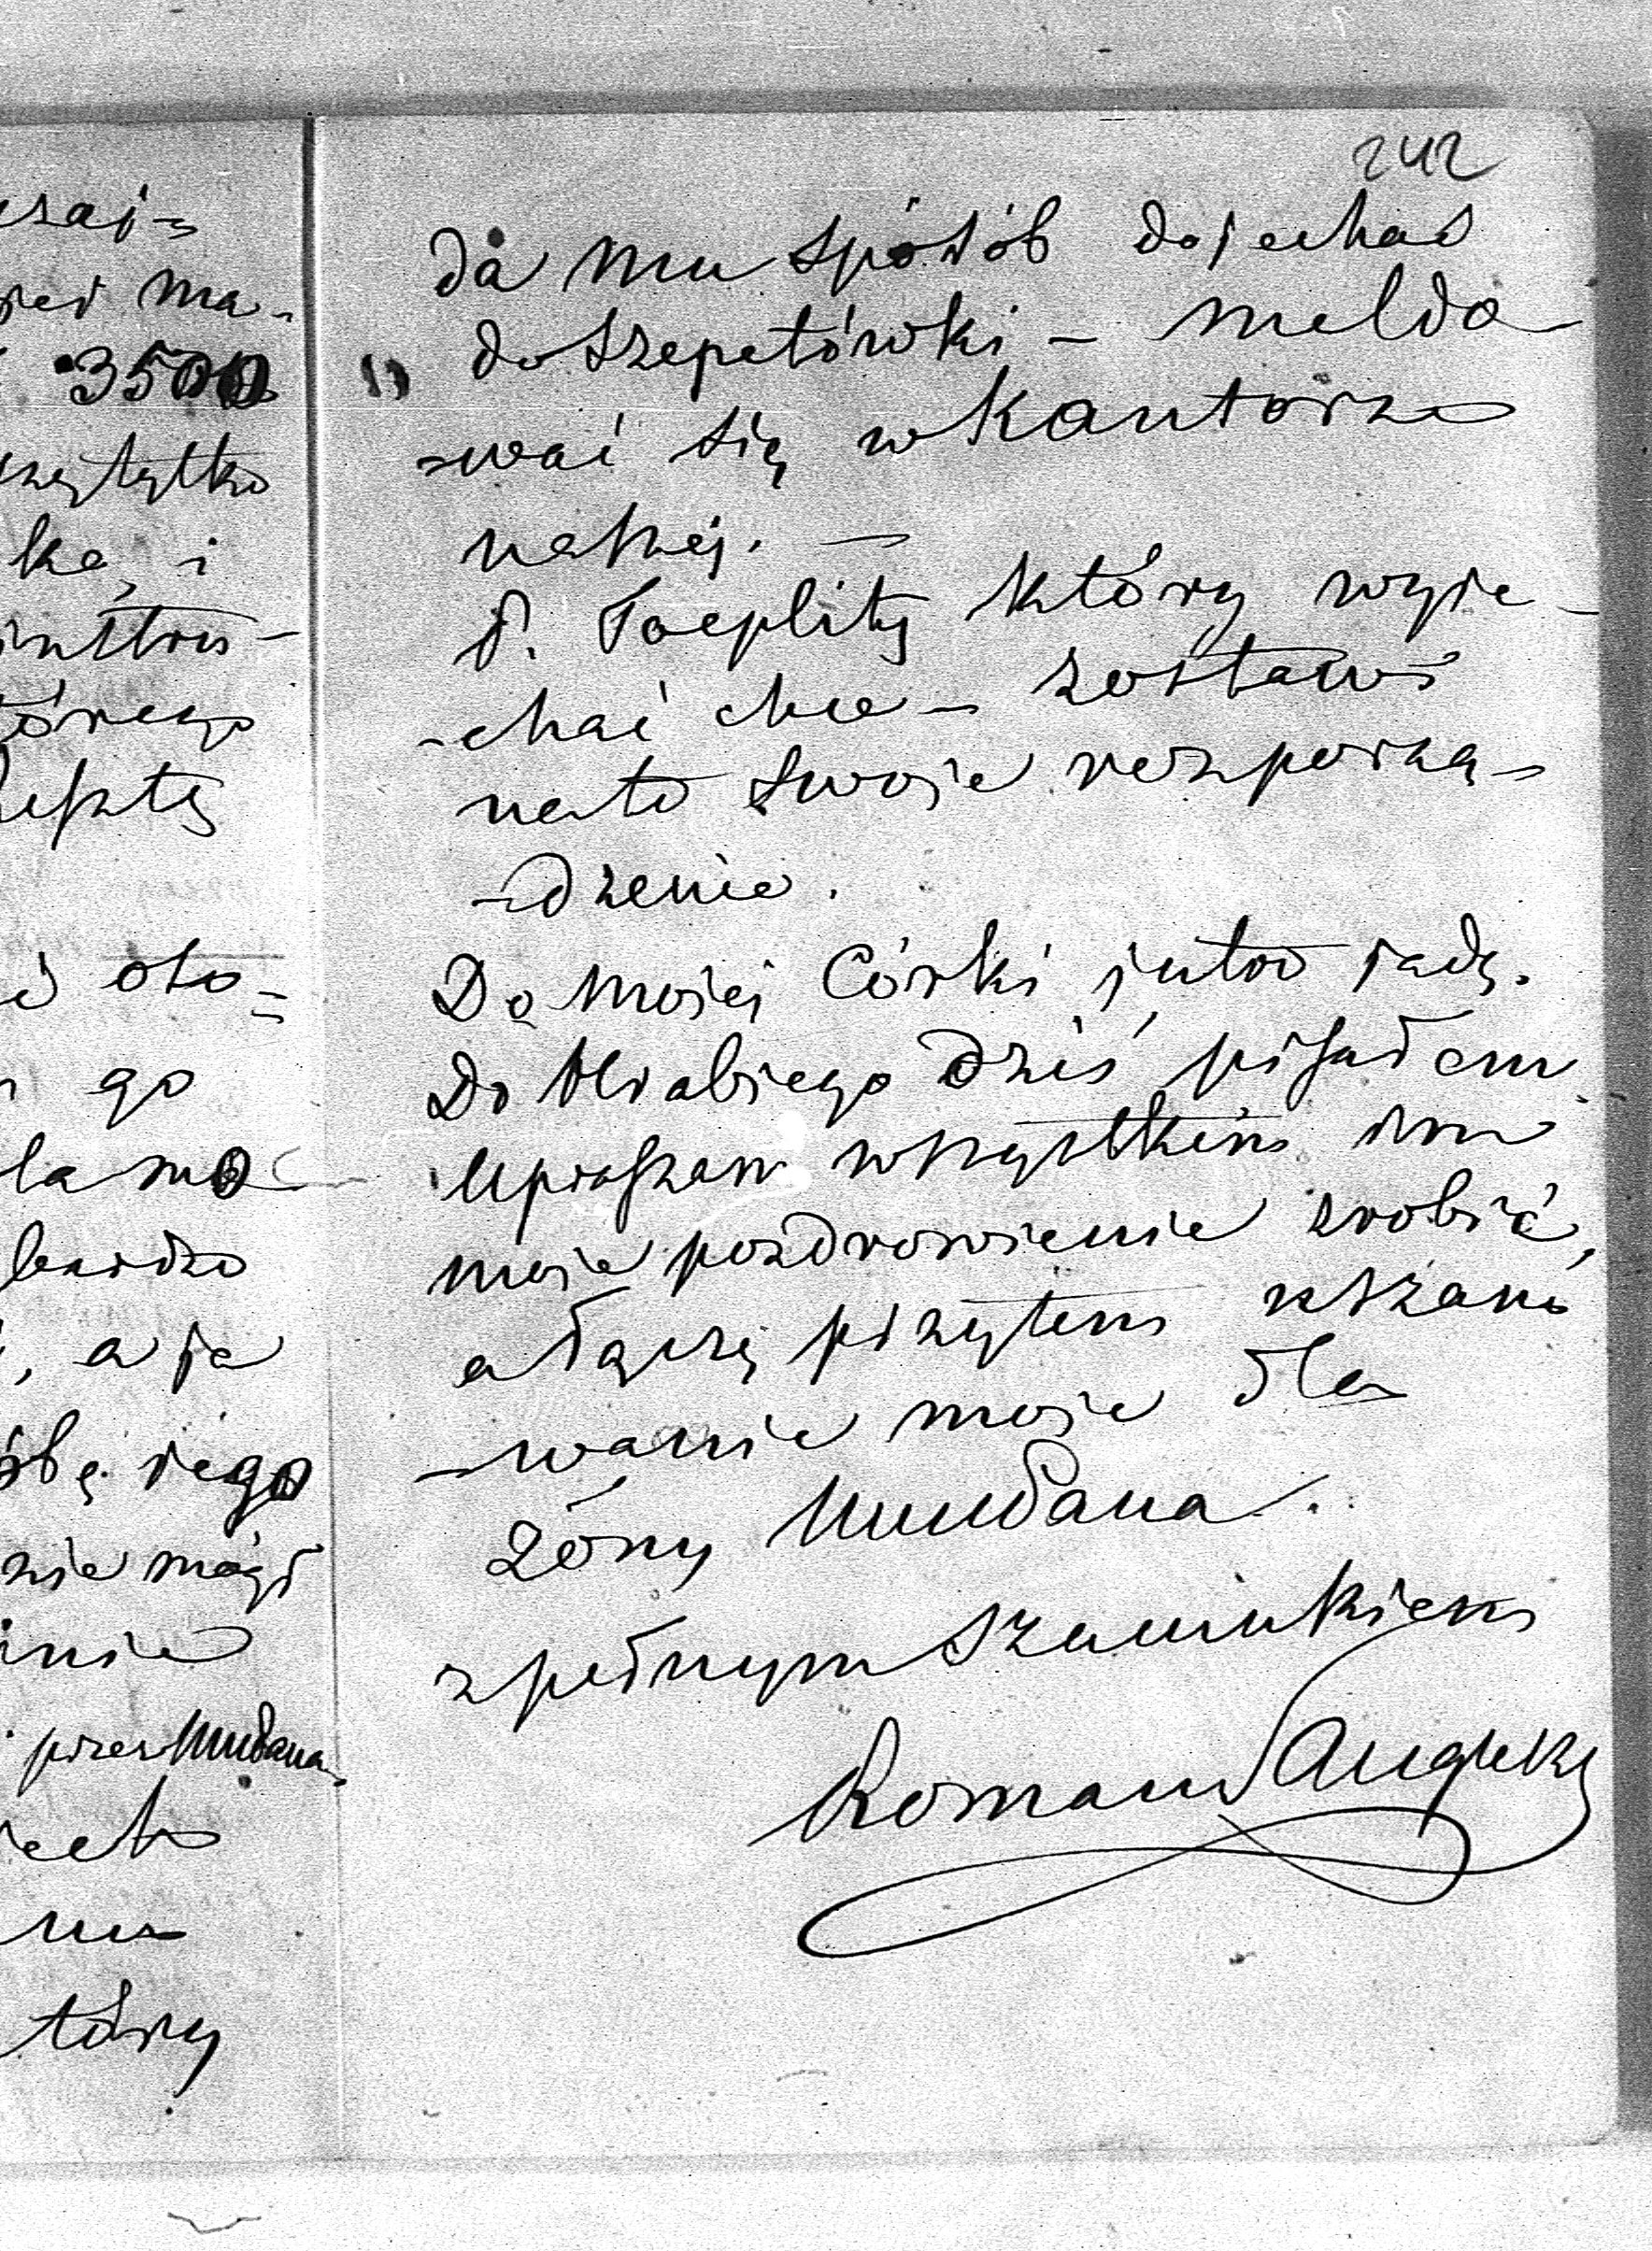 242
da mu sposób dojechać
do Szepetówki – meldo-
-wać się w Kantorze
naszej. –
P. Toeplitz który wyje-
-chać chce – zostawi
na to swoje rozporzą-
-dzenie.
Do mojej Córki jutro jadę.
Do Hrabiego dziś pisałem
Upraszam wszystkim
moje pozdrowienie zrobić,
a łączę przytem uszano
-wanie moje dla
żóny Mundana.
z pełnym szacunkiem
Roman Sanguszko
ma-
3500
tylko
ka, i
instru-
tórego
resztę
oto-
go
bardzo
, a ja
jego
nie mógł
przez Mundana
tóry